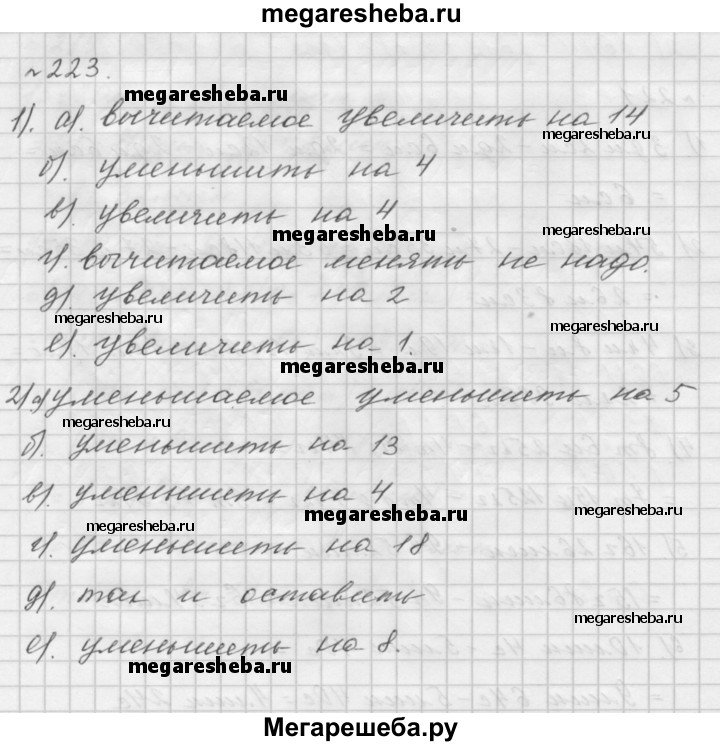 megaresheba.ru
№223.
megaresheba.ru
1). а). вычитаемое увеличить на 14
megaresheba.ru
б). уменьшить на 4
в). увеличить на 4
megaresheba.ru
megaresheba.ru
г). вычитаемое менять не надо.
д). увеличить на 2
megaresheba.ru
megaresheba.ru
е). увеличить на 1.
megaresheba.ru
2) а) уменьшаемое уменьшить на 5
megaresheba.ru
б). уменьшить на 13
в). уменьшить на 4
megaresheba.ru
megaresheba.ru
megaresheba.ru
г). уменьшить на 18
д). так и оставить
megaresheba.ru
е). уменьшить на 8.
megaresheba.ru
Мегарешеба.ру